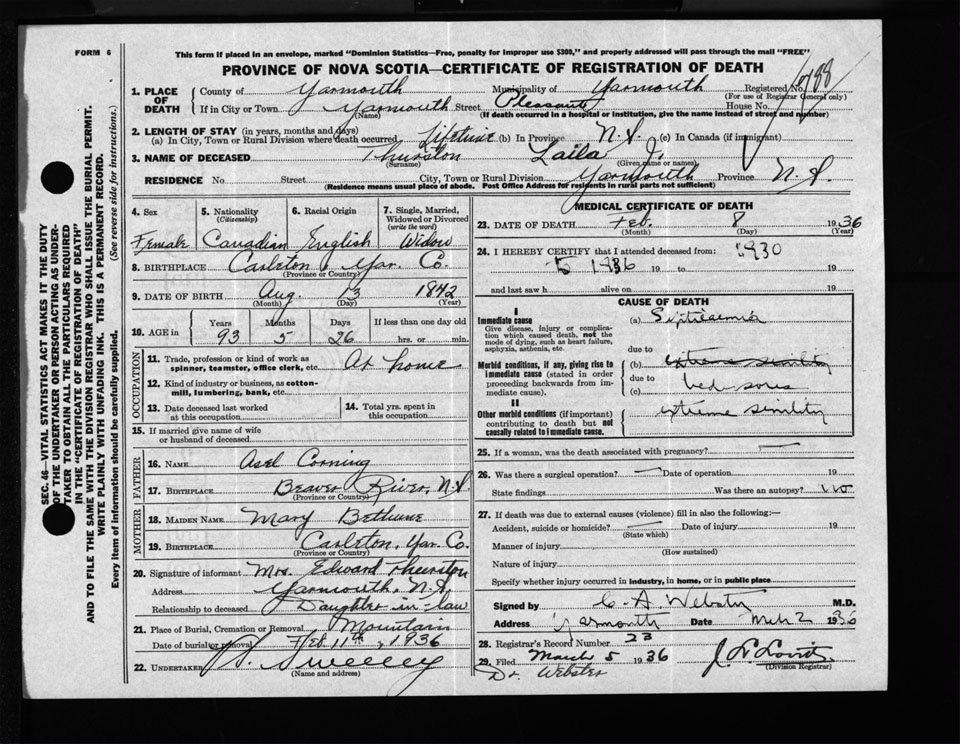 FORM 6
This form if placed in an envelope, marked "Dominion Statistics—Free, penalty for improper use $300," and properly addressed will pass through the mail "FREE"
PROVINCE OF NOVA SCOTIA—CERTIFICATE OF REGISTRATION OF DEATH
SEC. 46—VITAL STATISTICS ACT MAKES IT THE DUTY
OF THE UNDERTAKER OR PERSON ACTING AS UNDER-
TAKER TO OBTAIN ALL THE PARTICULARS REQUIRED
IN THE "CERTIFICATE OF REGISTRATION OF DEATH"
AND TO FILE THE SAME WITH THE DIVISION REGISTRAR WHO SHALL ISSUE THE BURIAL PERMIT.
WRITE PLAINLY WITH UNFADING INK. THIS IS A PERMANENT RECORD.
Every item of information should be carefully supplied. (See reverse side for instructions.)
1. PLACE OF DEATH County of Yarmouth Municipality of Yarmouth Registered No.
(For use of Registrar General only)
If in City or Town Yarmouth Street Pleasant House No.
(Name) (If death occurred in a hospital or institution, give the name instead of street and number)
2. LENGTH OF STAY (in years, months and days)
(a) In City, Town or Rural Division where death occurred Lifetime (b) In Province N.S. (c) In Canada (if immigrant)
3. NAME OF DECEASED Thurston Laila J.
(Surname) (Given name or names)
RESIDENCE No. Street City, Town or Rural Division Yarmouth Province N.S.
(Residence means usual place of abode. Post Office Address for residents in rural parts not sufficient)
4. Sex Female
5. Nationality (Citizenship) Canadian
6. Racial Origin English
7. Single, Married, Widowed or Divorced (write the word) Widow
8. BIRTHPLACE Carleton Yar. Co.
(Province or Country)
9. DATE OF BIRTH Aug. 13 1842
(Month) (Day) (Year)
10. AGE in Years Months Days If less than one day old
93 5 26 hrs. or min.
OCCUPATION
11. Trade, profession or kind of work as spinner, teamster, office clerk, etc. At home
12. Kind of industry or business, as cotton-mill, lumbering, bank, etc.
13. Date deceased last worked at this occupation
14. Total yrs. spent in this occupation
15. If married give name of wife or husband of deceased
FATHER
16. NAME Asel Corning
17. BIRTHPLACE Beaver River, N.S.
(Province or Country)
MOTHER
18. MAIDEN NAME Mary Bethune
19. BIRTHPLACE Carleton, Yar. Co.
(Province or Country)
20. Signature of informant Mrs. Edward Thurston
Address Yarmouth, N.S.
Relationship to deceased Daughter-in-law
21. Place of Burial, Cremation or Removal Mountain
Date of burial or removal Feb. 11th, 1936
22. UNDERTAKER Sweeney
(Name and address)
MEDICAL CERTIFICATE OF DEATH
23. DATE OF DEATH Feb. 8 1936
(Month) (Day) (Year)
24. I HEREBY CERTIFY that I attended deceased from: 1930
5 1936 19 to 19
and last saw h alive on 19
CAUSE OF DEATH
I
Immediate cause
Give disease, injury or complication which caused death, not the mode of dying, such as heart failure, asphyxia, asthenia, etc.
(a) Septicaemia
due to
Morbid conditions, if any, giving rise to immediate cause (stated in order proceeding backwards from immediate cause).
(b) extreme senility
due to
(c) bed sores
II
Other morbid conditions (if important) contributing to death but not causally related to immediate cause.
extreme senility
25. If a woman, was the death associated with pregnancy?
26. Was there a surgical operation? Date of operation 19
State findings Was there an autopsy? no
27. If death was due to external causes (violence) fill in also the following:—
Accident, suicide or homicide? Date of injury 19
(State which)
Manner of injury
(How sustained)
Nature of injury
Specify whether injury occurred in industry, in home, or in public place
Signed by C. A. Webster M.D.
Address Yarmouth Date Mch 2 1936
28. Registrar's Record Number 23
29. Filed March 5 1936
(Division Registrar)
Dr. Webster